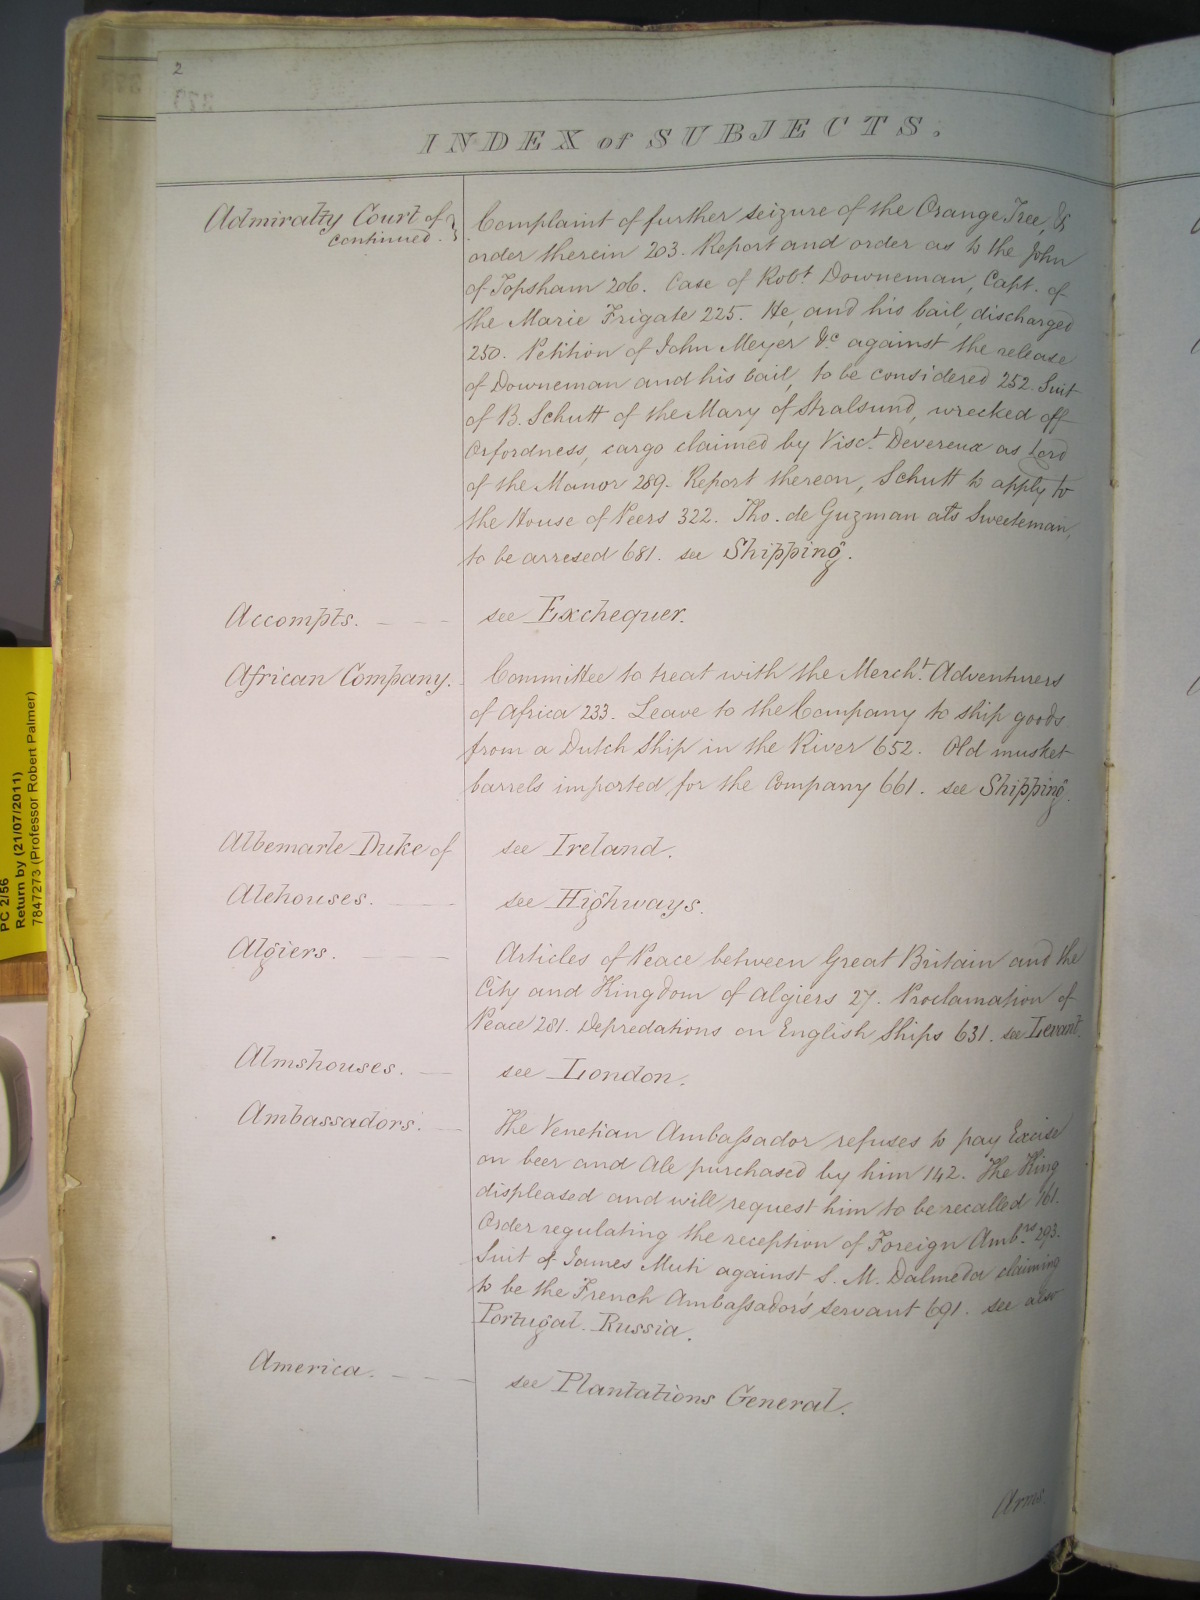 2
INDEX of SUBJECTS.
Admiralty Court of
continued.
Complaint of further seizure of the Orange Tree, &
order therein 203. Report and order as to the John
of Topsham 206. Case of Robt Downeman, Capt. of
the Marie Frigate 225. He, and his bail, discharged
250. Petition of John Meyer &c against the release
of Downeman and his bail, to be considered 252. Suit
of B. Schutt of the Mary of Stralsund, wrecked off
Orfordness, cargo claimed by Visct. Devereux as Lord
of the Manor 289. Report thereon, Schutt to apply to
the House of Peers 322. Tho. de Guzman ats Sweeteman,
to be arresed 681. see Shipping.
Accompts. - - - see Exchequer.
African Company. Committee to treat with the Mercht. Adventurers
of Africa 233. Leave to the Company to ship goods
from a Dutch Ship in the River 652. Old musket
barrels imported for the Company 661. see Shipping.
Albemarle Duke of see Ireland.
Alehouses. - - see Highways.
Algiers. - - - Articles of Peace between Great Britain and the
City and Kingdom of Algiers 27. Proclamation of
Peace 281. Depredations on English Ships 631. see Levant.
Almshouses. - - see London.
Ambassadors. - The Venetian Ambassador refuses to pay Excise
on beer and Ale purchased by him 142. The King
displeased and will request him to be recalled 161.
Order regulating the reception of Foreign Ambrs. 293.
Suit of James Muti against S. M. Dalmeda claiming
to be the French Ambassador's servant 691. see also
Portugal. Russia.
America. - - - - see Plantations General.
Arms.
PC 2/56
Return by (21/07/2011)
7847273 (Professor Robert Palmer)